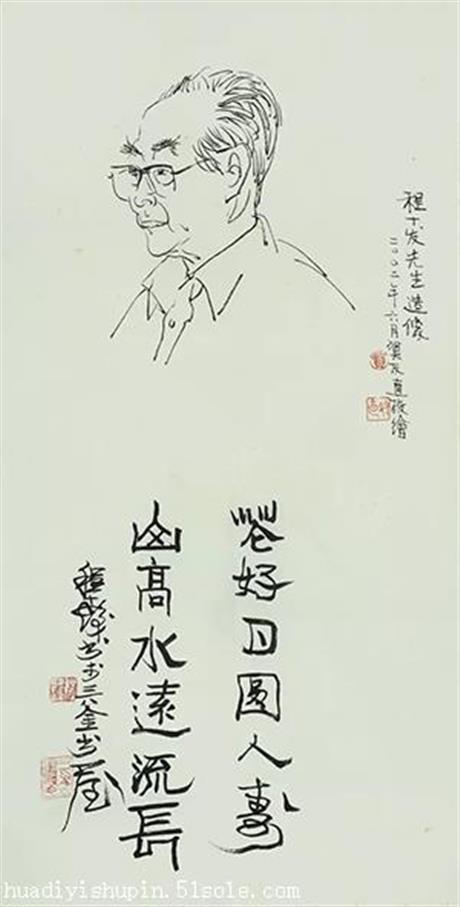 程十发先生造像
二〇〇二年六月賀友直敬繪
花好月圓人壽
山高水遠流長
程十髮书于三釜书屋
huadiyishupin.51sole.com